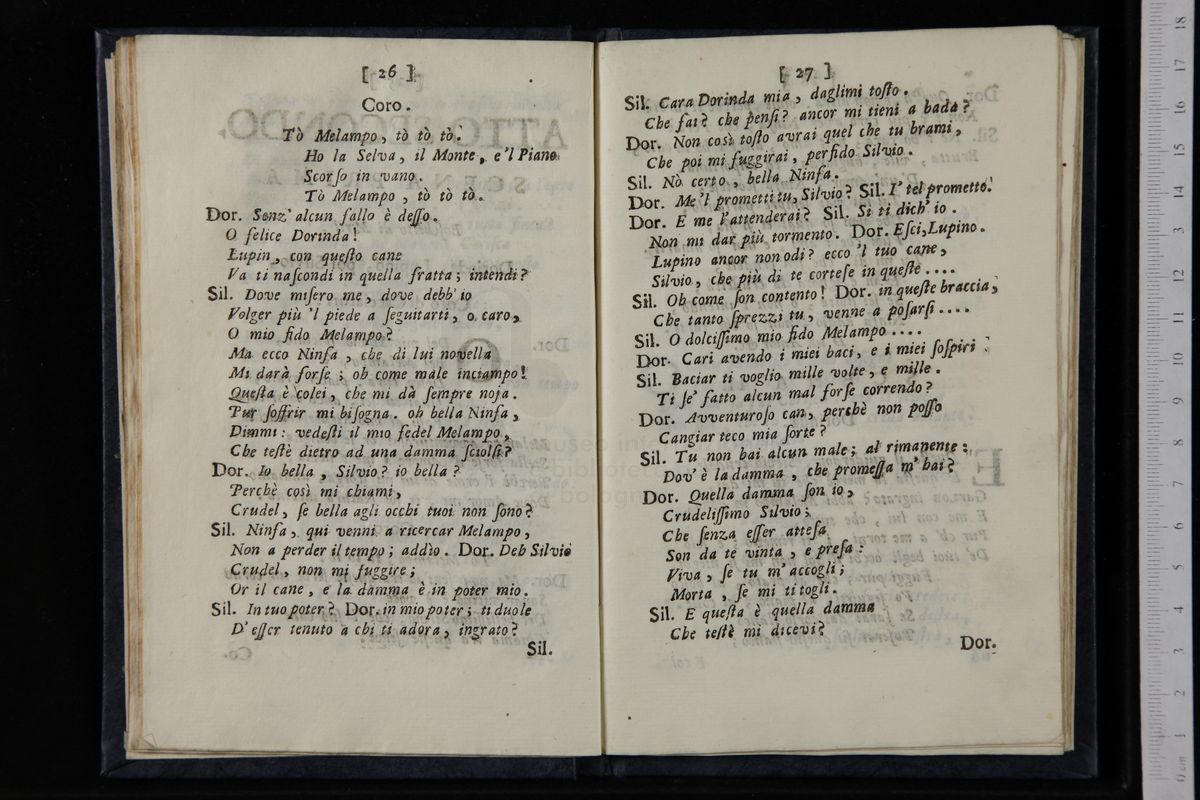 [ 26 ]
Coro.
Tò Melampo, tò tò tò.
Ho la Selva, il Monte, e'l Piano
Scorſo in vano.
Tò Melampo, tò tò tò.
Dor. Senz' alcun fallo è deſſo.
O felice Dorinda!
Lupin, con queſto cane
Va ti naſcondi in quella fratta; intendi?
Sil. Dove miſero me, dove debb' io
Volger più 'l piede a ſeguitarti, o caro,
O mio fido Melampo?
Ma ecco Ninfa, che di lui novella
Mi darà forſe; oh come male inciampo!
Queſta è colei, che mi dà ſempre noja.
Pur ſoffrir mi biſogna. oh bella Ninfa,
Dimmi: vedeſti il mio fedel Melampo,
Che teſtè dietro ad una damma ſciolſi?
Dor. Io bella, Silvio? io bella?
Perchè così mi chiami,
Crudel, ſe bella agli occhi tuoi non ſono?
Sil. Ninfa, qui venni a ricercar Melampo,
Non a perder il tempo; addìo. Dor. Deh Silvio
Crudel, non mi fuggire;
Or il cane, e la damma è in poter mio.
Sil. In tuo poter? Dor. in mio poter; ti duole
D' eſſer tenuto a chi ti adora, ingrato?
Sil.
[ 27 ]
Sil. Cara Dorinda mia, daglimi toſto.
Che fai? che penſi? ancor mi tieni a bada?
Dor. Non così toſto avrai quel che tu brami,
Che poi mi fuggirai, perfido Silvio.
Sil. Nò certo, bella Ninfa.
Dor. Me 'l prometti tu, Silvio? Sil. I' tel prometto.
Dor. E me l'attenderai? Sil. Sì ti dich' io.
Non mi dar più tormento. Dor. Eſci, Lupino.
Lupino ancor non odi? ecco 'l tuo cane,
Silvio, che più di te corteſe in queſte....
Sil. Oh come ſon contento! Dor. in queſte braccia,
Che tanto ſprezzi tu, venne a poſarſi....
Sil. O dolciſſimo mio fido Melampo....
Dor. Cari avendo i miei baci, e i miei ſoſpiri.
Sil. Baciar ti voglio mille volte, e mille.
Ti ſe' fatto alcun mal forſe correndo?
Dor. Avventuroſo can, perchè non poſſo
Cangiar teco mia ſorte?
Sil. Tu non hai alcun male; al rimanente:
Dov' è la damma, che promeſſa m' hai?
Dor. Quella damma ſon io,
Crudeliſſimo Silvio;
Che ſenza eſſer atteſa
Son da te vinta, e preſa:
Viva, ſe tu m' accogli;
Morta, ſe mi ti togli.
Sil. E queſta è quella damma
Che teſtè mi dicevi?
Dor.